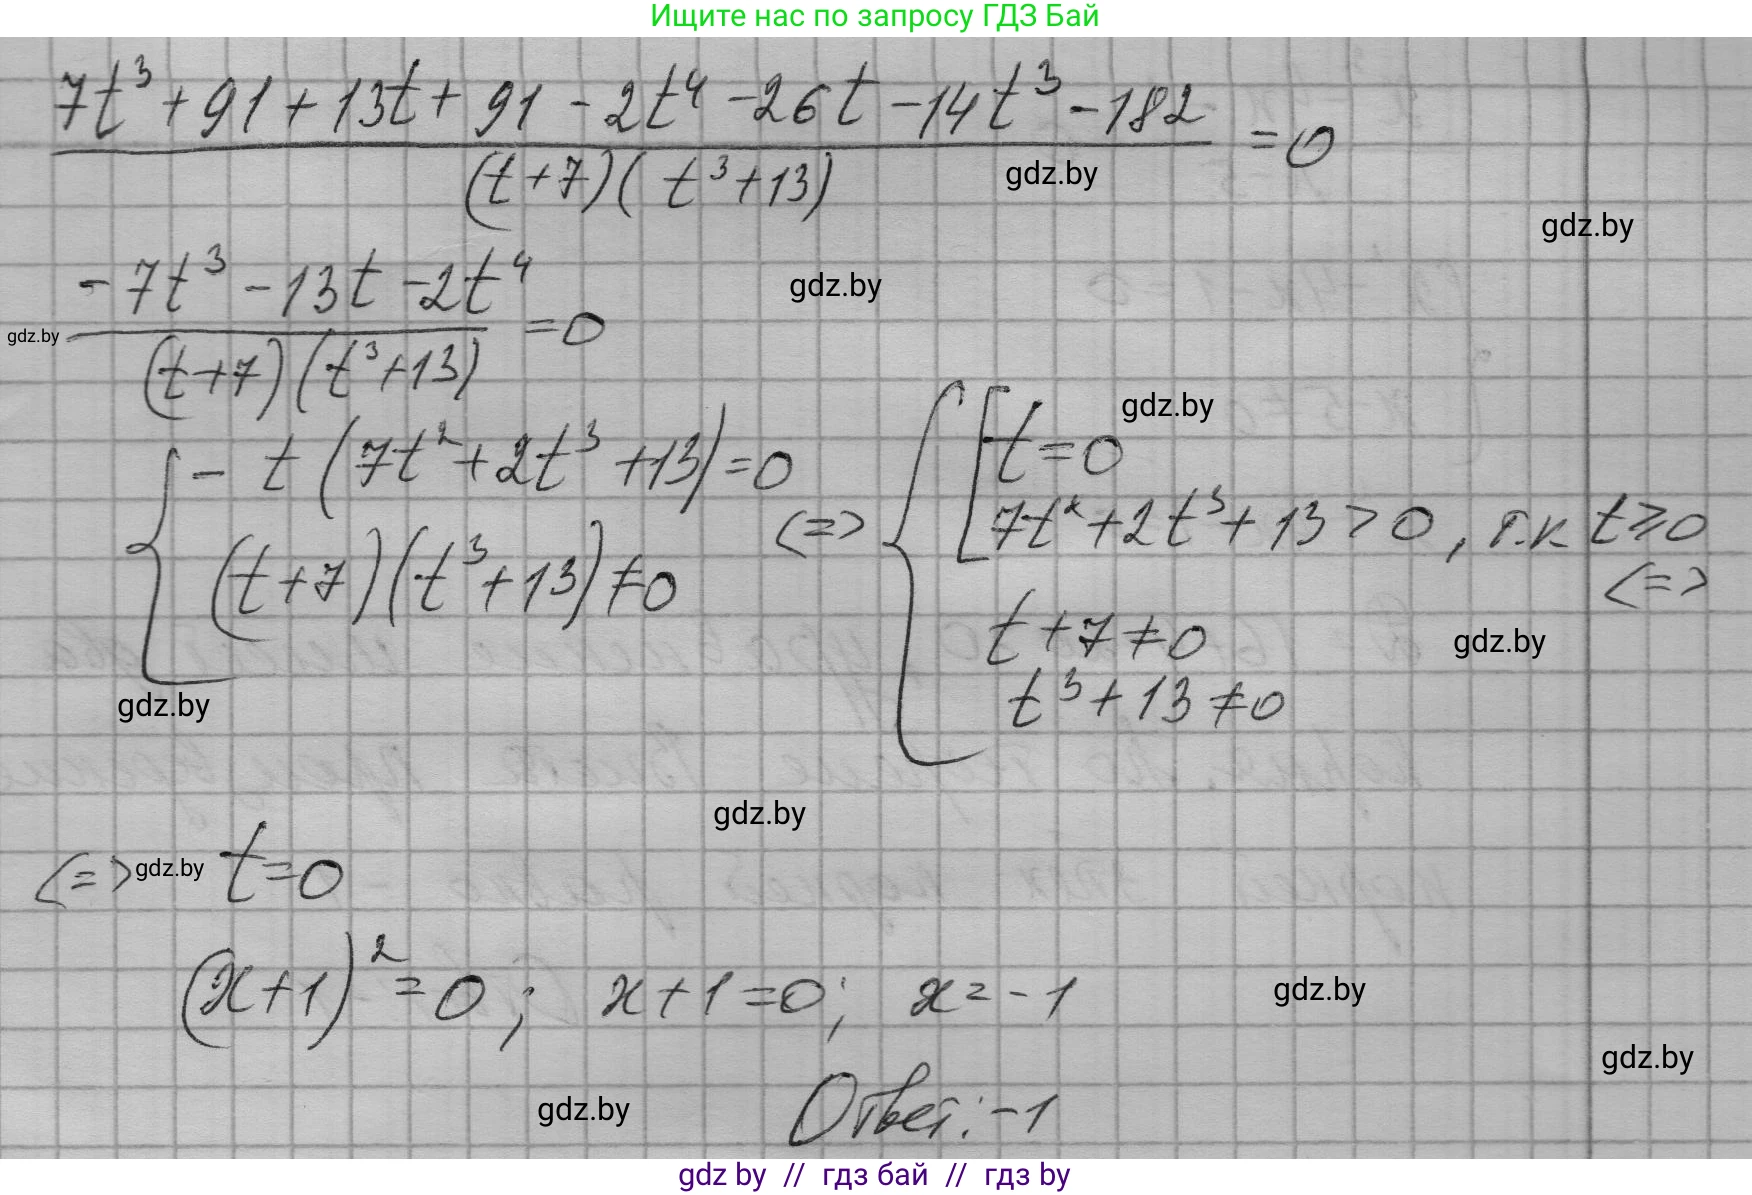 Ищите нас по запросу ГДЗ Бай
7t³ + 91 + 13t + 91 - 2t⁴ - 26t - 14t³ - 182
(t+7)(t³+13)
=0
gdz.by
gdz.by
-7t³ - 13t - 2t⁴
(t+7)(t³+13)
=0
gdz.by
gdz.by
{ -t(7t²+2t³+13)=0
(t+7)(t³+13)≠0
<=>
{ [ t=0
7t²+2t³+13>0, т.к t≥0
t+7≠0
t³+13≠0
<=>
gdz.by
gdz.by
gdz.by
gdz.by
<=> gdz.by t=0
(x+1)²=0; x+1=0; x=-1
gdz.by
gdz.by
gdz.by
Ответ: -1
gdz by // гдз бай // gdz by